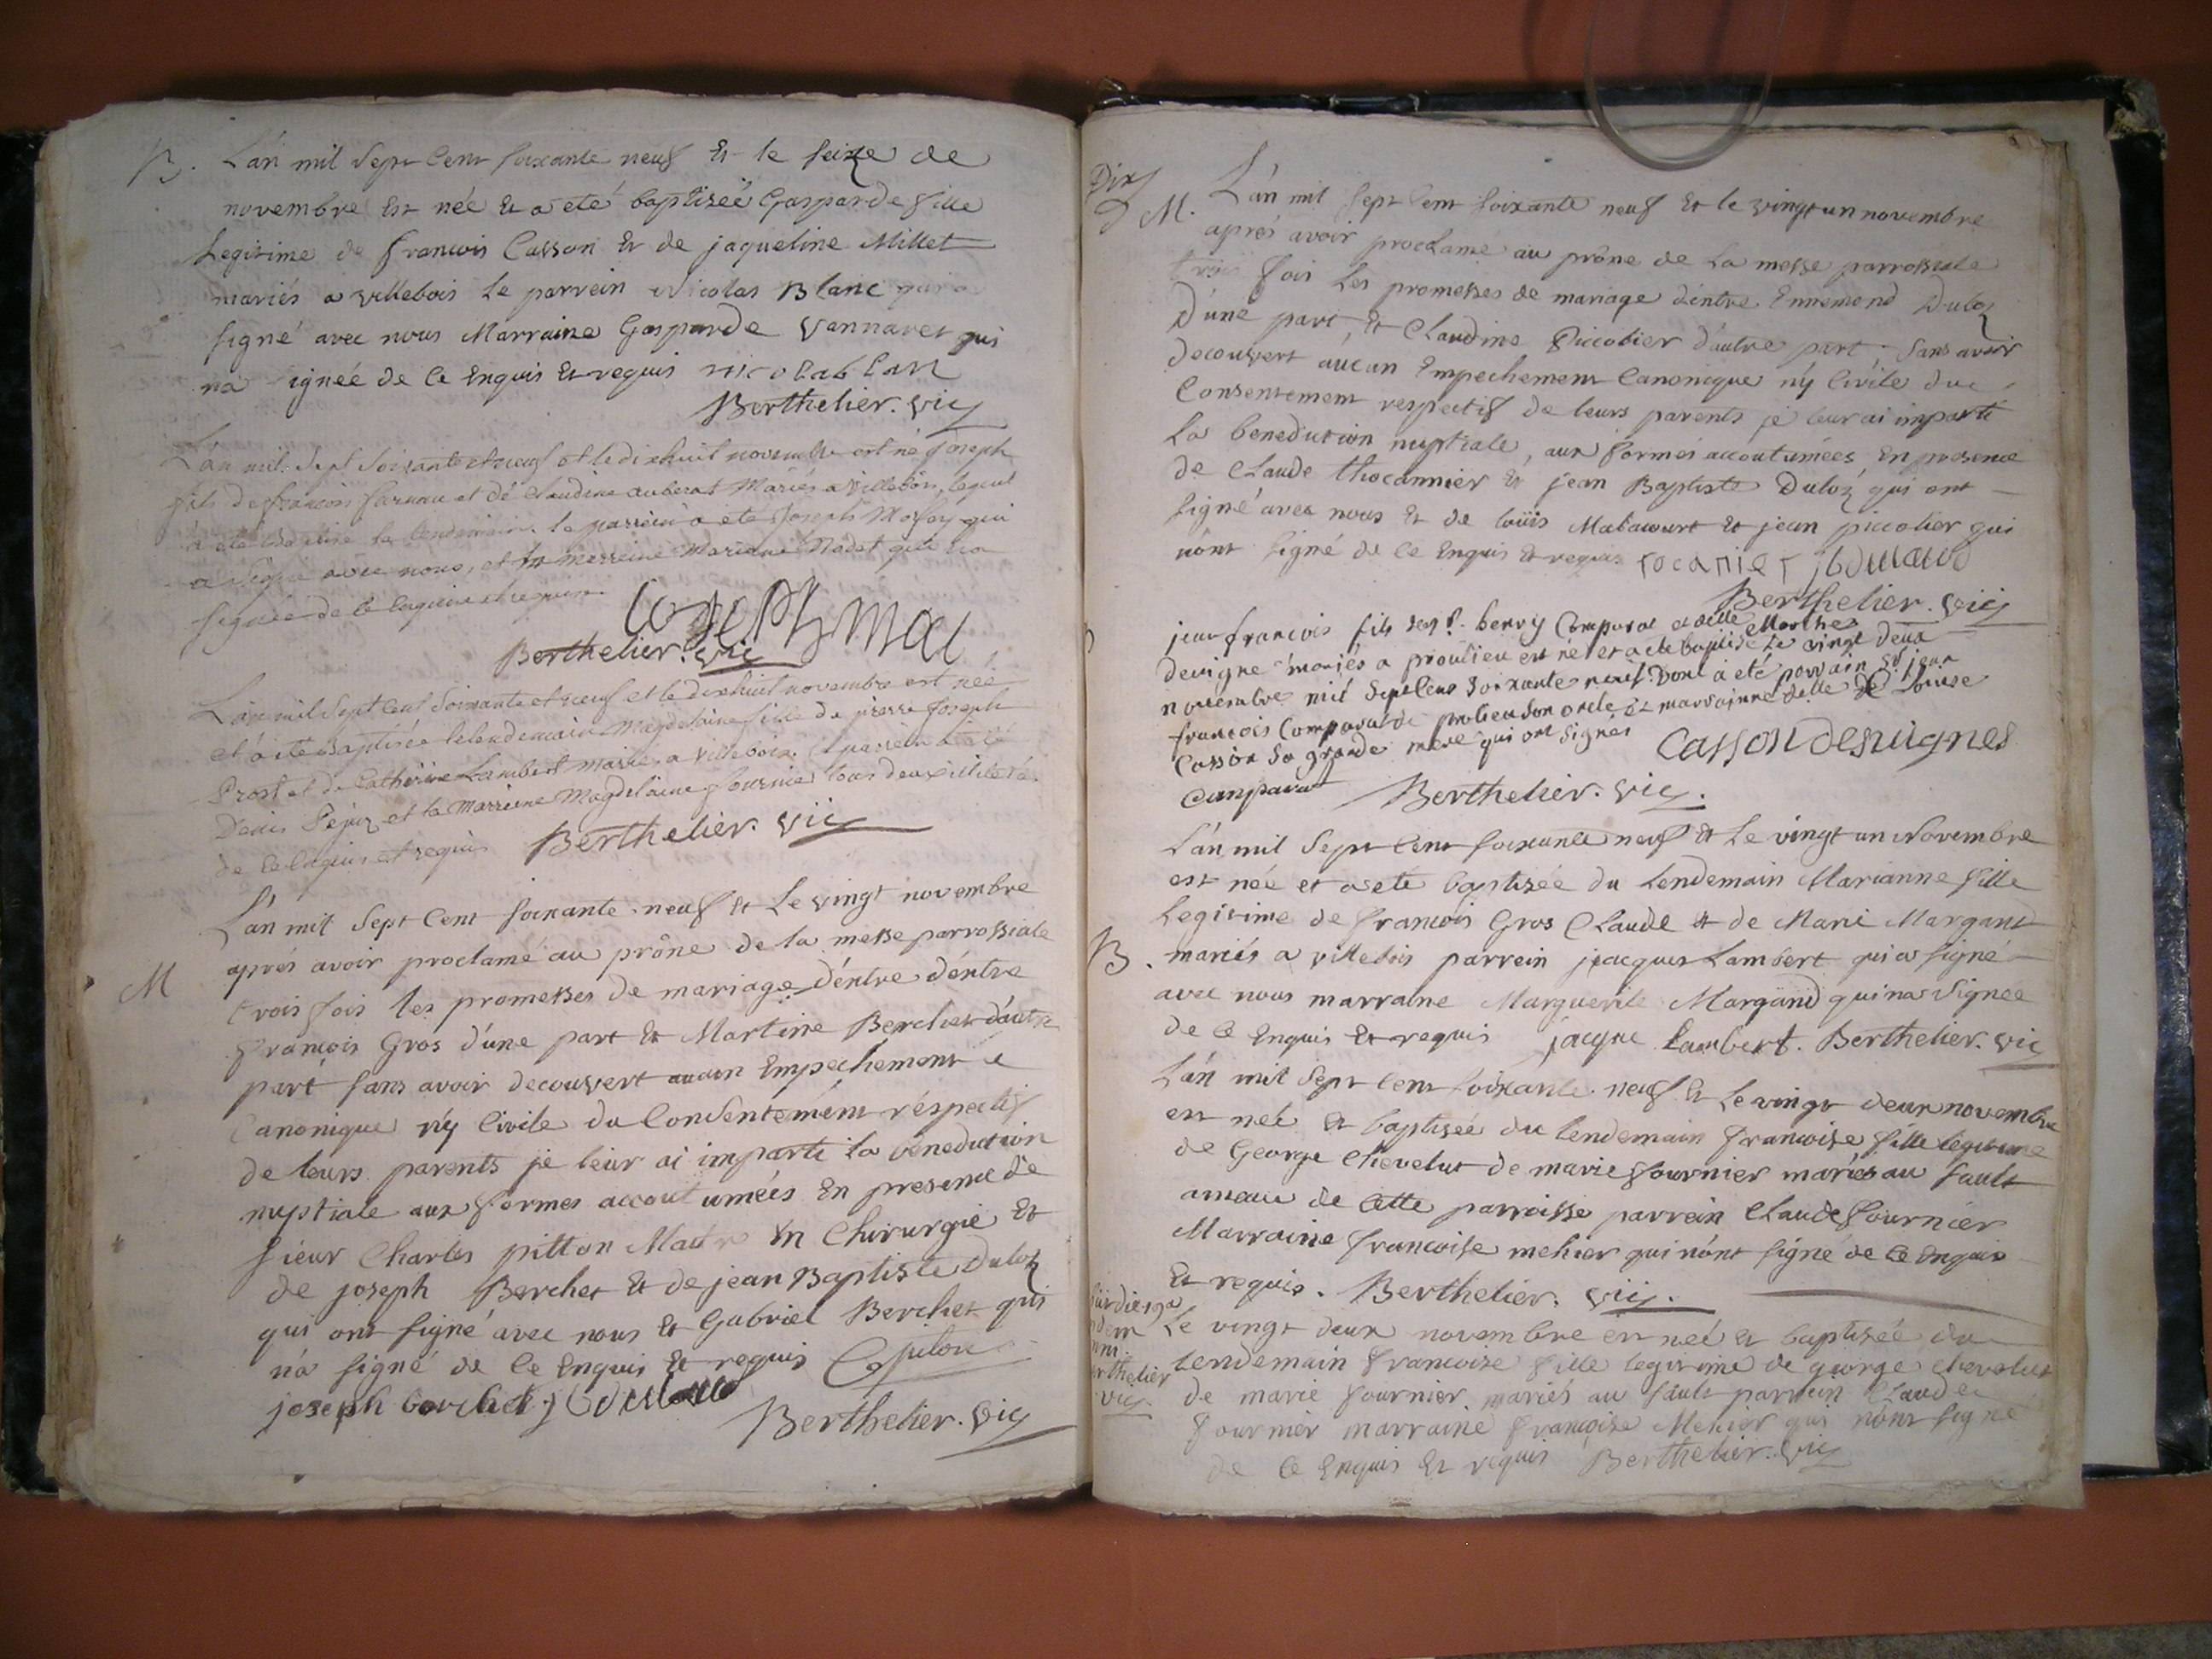 B. L'an mil Sept Cent soixante neuf Et le seize de
novembre Est née Et a eté baptisée Gasparde fille
Legitime de francois Casson Et de jaqueline Millet
mariés a villebois le parrein Nicolas Blanc qui a
signé avec nous Marraine Gasparde Vannaret qui
na signée de Ce Enquis Et requis nicolablan
Berthelier. vic
L'an mil Sept Soixante et neuf et le dixhuit novembre est né joseph
fils de francois et de Claudine auberat Mariés a Villebois, lequel
a eté le lendemain le parrein a eté joseph qui
a Signé avec nous, et la marreine Mariane Nadet qui na
Signée de Ce Enquise et requise
Joseph
Berthelier. vic
L'an mil Sept Cent Soixante et neuf et le dixhuit novembre est née
et a eté baptisée le lendemain Magdelaine fille de pierre joseph
Prost et de Catherine Lambert Mariés a villebois. Le parrein a eté
Denis et la Marreine Magdelaine fournier tous deux
de Ce Enquis et requis Berthelier. vic
L'an mil Sept Cent soixante neuf Et Le vingt novembre
M aprés avoir proclamé au prône de la messe parrossiale
trois fois les promesses de mariage d'entre d'entre
françois Gros d'une part Et Martine Berchet d'autre
part sans avoir decouvert aucun Empechement
Canonique n'y Civile du Consentement réspectif
de leurs parents je leur ai imparti la benediction
nuptiale aux formes accoutumées En presence de
sieur Charles pitton Maitre En Chirurgie Et
de joseph Berchet Et de jean Baptiste Duloz
qui ont signé avec nous Et Gabriel Berchet qui
n'a signé de Ce Enquis Et requis C pilon
joseph berchet jb
Berthelier. vic
Dix
M. L'an mil sept Cent soixante neuf Et le vingt un novembre
aprés avoir proclamé au prône de La messe parrossiale
trois fois Les promesses de mariage d'entre Ennemond Duloz
D'une part, Et Claudine Piccolier d'autre part, sans avoir
decouvert aucun Empechement Canonique n'y Civile du
Consentement respectif de leurs parents je leur ai imparti
La benediction nuptiale, aux formes accoutumées, En presence
de Claude thocannier Et jean Baptiste Duloz qui ont
signé avec nous Et de loüis Et jean piccolier qui
n'ont signé de Ce Enquis Et requis rocanier
Berthelier. vic
jean francois fils de Sr. henry Comparat et delle Marthe
devigne mariés a proulieu est né et a eté baptisé Le vingt deux
novembre mil Sept Cens Soixante neuf Dont a été parrain Sr jean
francois Comparat de proulieu son oncle et marrainne delle Louise
Casson Sa grande mere qui ont signés Casson desuignes
Camparat Berthelier. vic.
L'an mil Sept Cent soixante neuf Et Le vingt un Novembre
est née et a ete baptisée du Lendemain Marianne fille
Legitime de francois Gros Claude Et de Marie Margand
B. mariés a villebois parrein jacques Lambert qui a signé
avec nous marraine Marguerite Margand qui na Signée
de Ce Enquis Et requis jacque Lambert. Berthelier. vic
L'an mil Sept Cent soixante neuf Et Le vingt deux novembre
est née Et baptisée du lendemain francoise fille legitime
de George Chevelut de marie fournier mariés au Sault
ameau de Cette parroisse parrein Claude fournier
Marraine francoise mehier qui n'ont signé de Ce Enquis
Et requis. Berthelier. vic.
rthelier
vic.
Le vingt deux novembre est née Et baptisée du
Lendemain francoise fille legitime de george chevelut
de marie fournier mariés au sault parrein Claude
fournier marraine francoise Mehier qui n'ont signé
de Ce Enquis Et requis Berthelier. vic